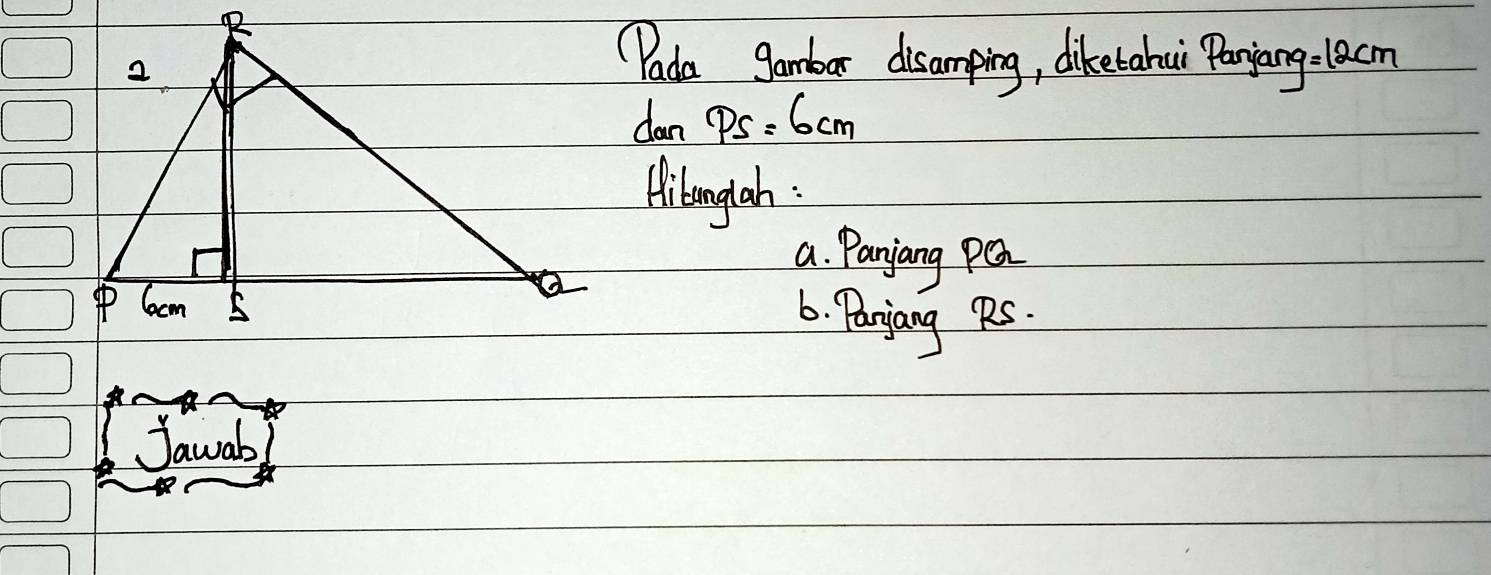 R
2
Pada gambar disamping, diketahui Panjang=12cm
dan PS = 6cm
Hitunglah :
a. Panjang PQ
b. Panjang RS.
P 6cm S Q
Jawab